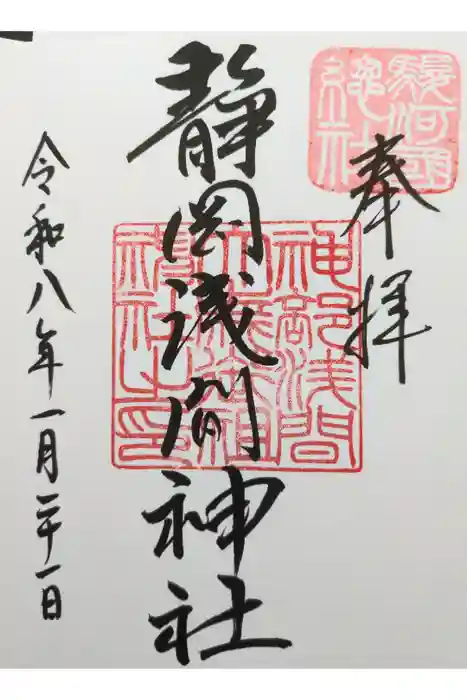 駿河國
總社
奉拝
静岡浅間神社
神部浅間
大歳御祖
社之印
令和八年一月二十一日